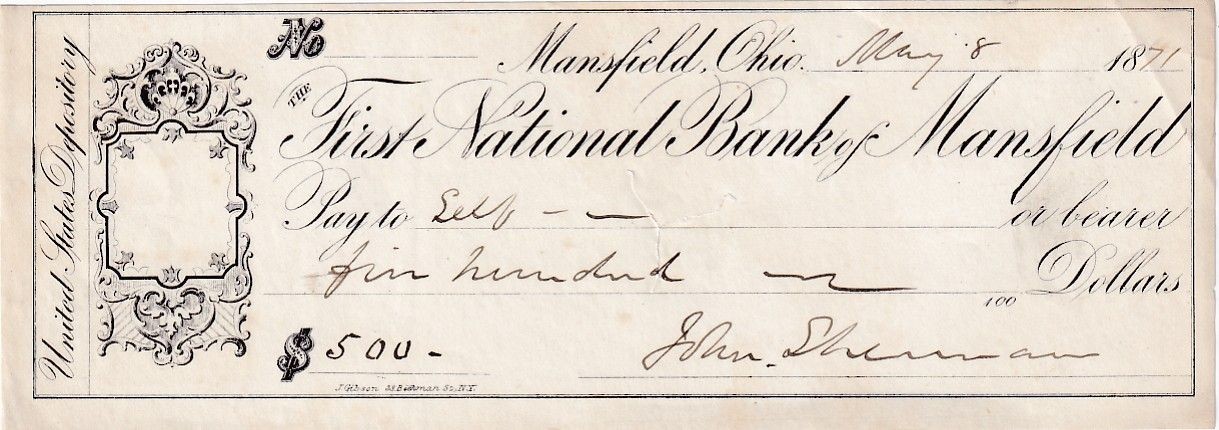 United States Depository
No
Mansfield, Ohio. May 8 1871
THE
First National Bank of Mansfield
Pay to Self - — or bearer
five hundred — 100 Dollars
$ 500 -
John Sherman
J. Gibson 32 Beekman St, N.Y.